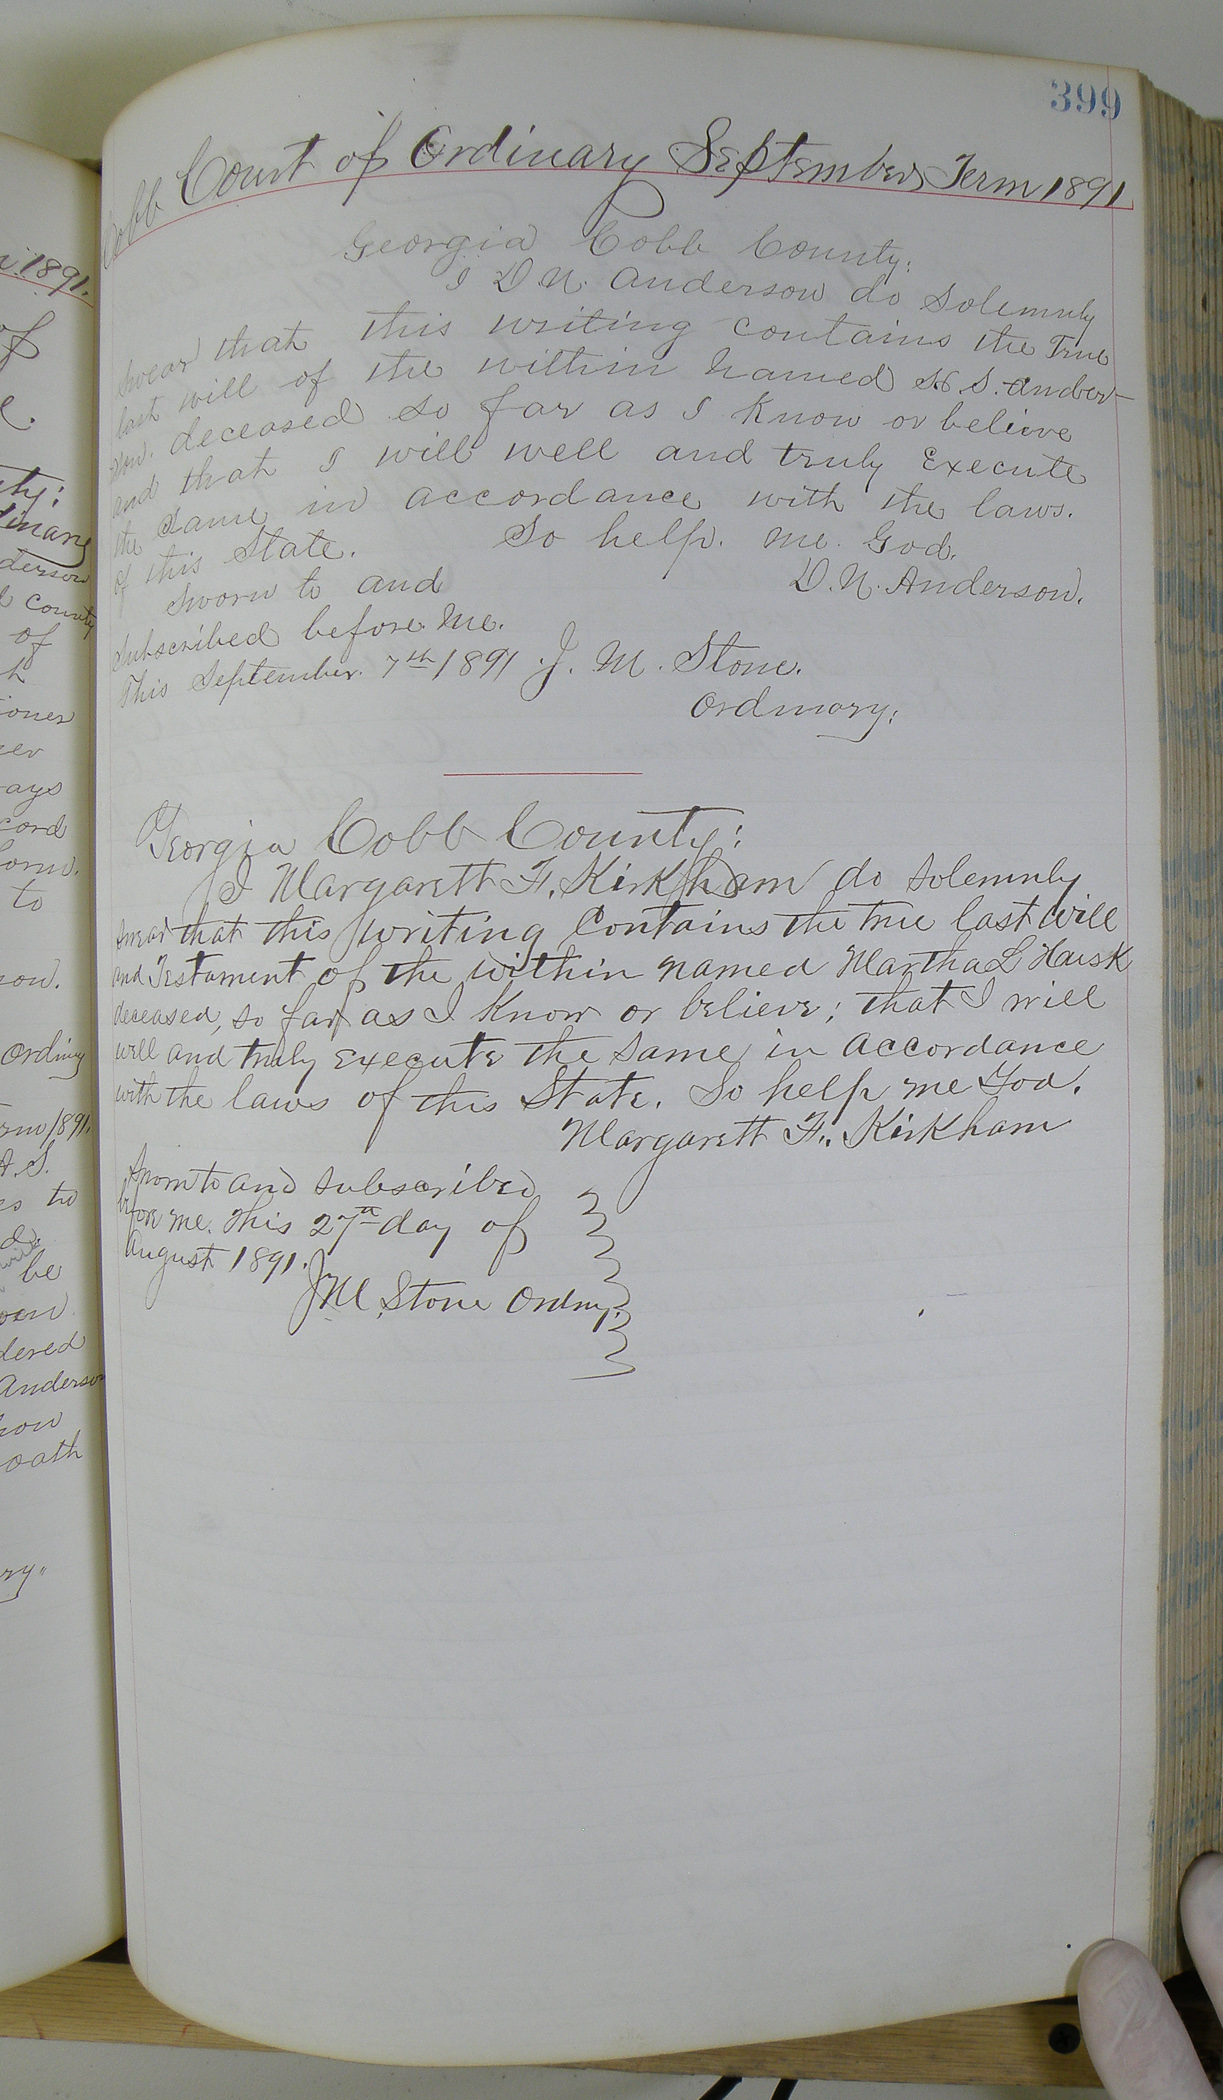 399
Cobb Court of Ordinary September Term 1891
Georgia Cobb County:
I D. N. Anderson do Solemnly
Swear that this writing contains the True
last will of the within named S. Ander-
son. deceased so far as I Know or believe
and that I will well and truly Execute
the Same in accordance with the laws.
of this State. So help. me. God.
Sworn to and D. N. Anderson.
Subscribed before Me.
This September. 7th 1891 J. M. Stone.
Ordinary.
Georgia Cobb County:
I Margarett F. Kirkham do solemnly
swear that this writing Contains the true last will
and Testament of the within named Martha L
deceased, so far as I Know or believe; that I will
well and truly Execute the same in accordance
with the laws of this State. So help me God.
Margarett F. Kirkham
Sworn to and subscribed
before me. this 27th day of
August 1891.
J M Stone Ordny.
1891.
of
derson
County
of
ays
cord
to
Ordiny
1891.
be
dered
Anderson
oath